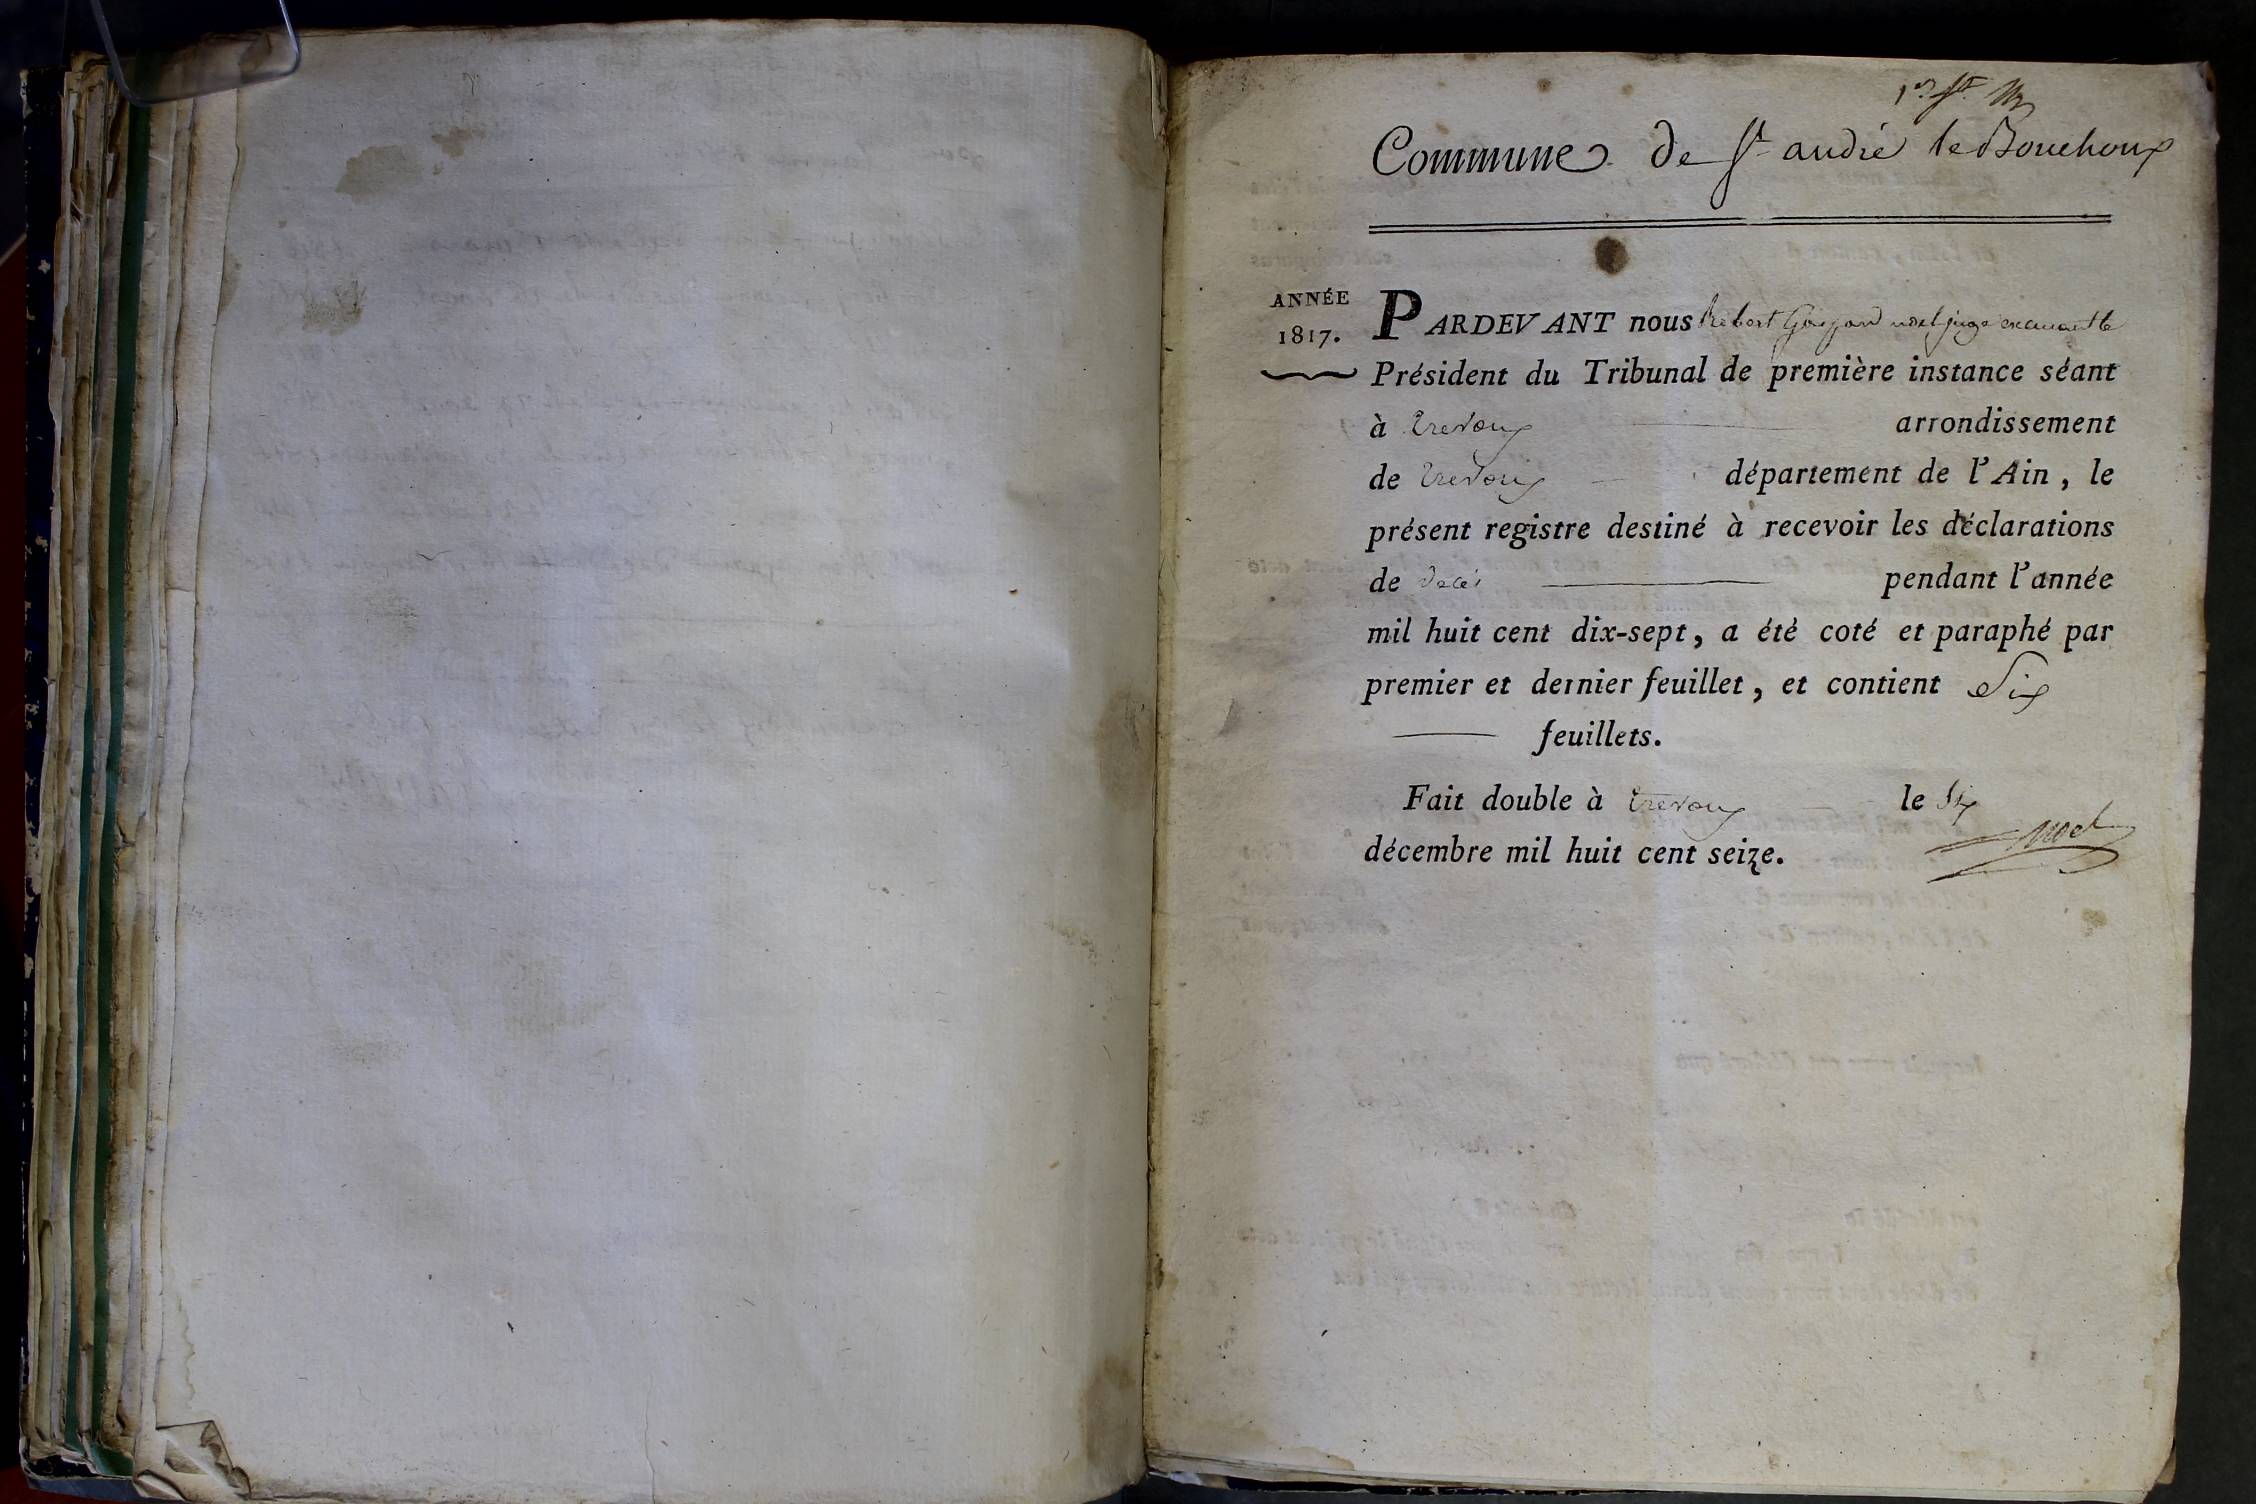 1er ft.
Commune de St andré le Bouchoux
ANNÉE
1817.
PARDEVANT nous Robert Gaspard noel juge exerçant le
Président du Tribunal de première instance séant
à trevoux arrondissement
de trevoux département de l'Ain, le
présent registre destiné à recevoir les déclarations
de décès pendant l'année
mil huit cent dix-sept, a été coté et paraphé par
premier et dernier feuillet, et contient Six
feuillets.
Fait double à trevoux le Six
décembre mil huit cent seize.
noel